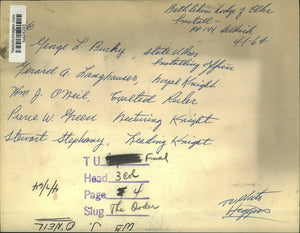 Bethlehem Lodge of Elks
Install-
4/1/64
George L Buchy, State V. Pres
Installing officer
Gerard A. Langhauser Loyal Knight
Wm J. O'Neil, Exalted Ruler
Pierce W. Green Lecturing Knight
Stewart Stephany, Leading Knight
T U Final
Head 3 Col
Page 4
Slug The Order
4/4/64
Wm J. O'NEIL